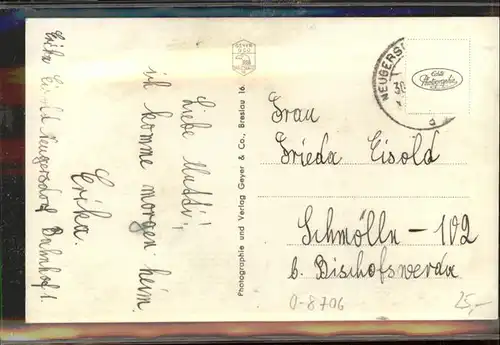 Liebe Mutti!,
ich komme morgen heim.
Erika.
Erika Eisold Neugersdorf Bahnhof 1.
GEYER
Photographie und Verlag Geyer & Co., Breslau 16.
NEUGERS
30
a
Echte
Photographie
Frau
Frieda Eisold
Schmölln - 102
b. Bischofswerda
O-8706
25,-